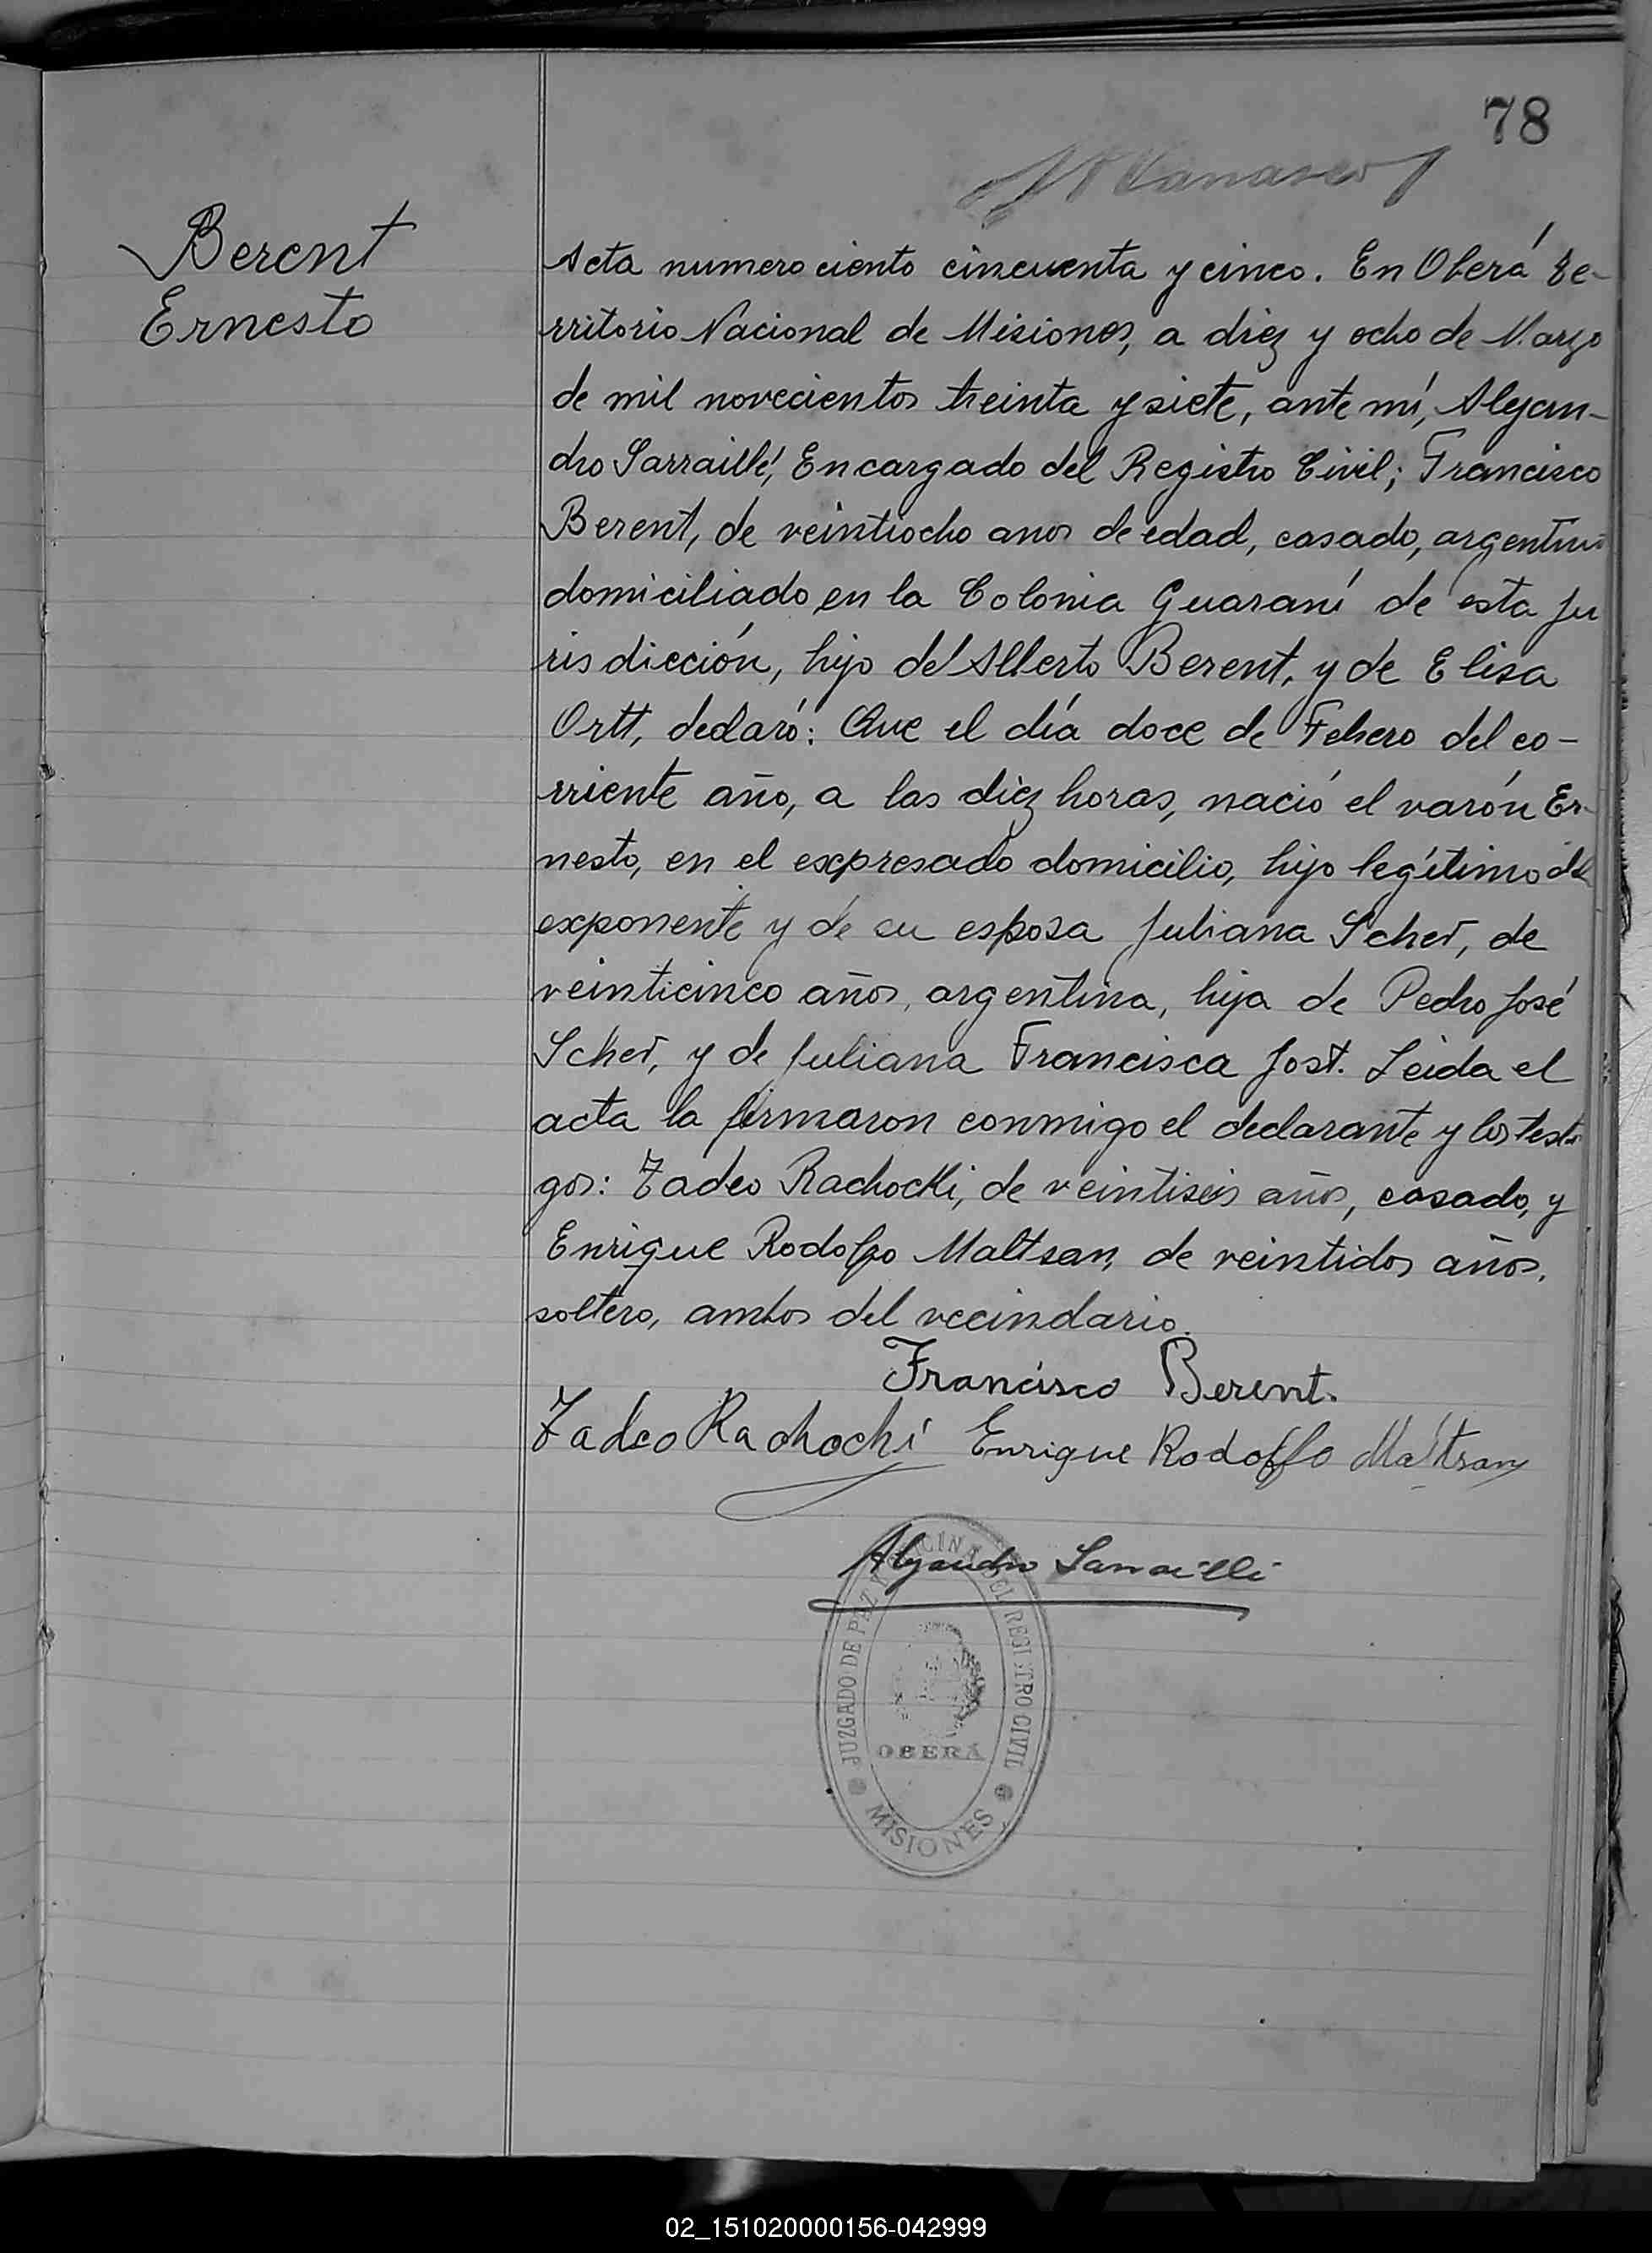 78
Berent
Ernesto
Acta numero ciento cincuenta y cinco. En Oberá te-
rritorio Nacional de Misiones, a diez y ocho de Marzo
de mil novecientos treinta y siete, ante mí, Alejan-
dro Sarraillé, Encargado del Registro Civil; Francisco
Berent, de veintiocho anos de edad, casado, argentino
domiciliado en la Colonia Guaraní de esta ju
risdicción, hijo de Alberto Berent, y de Elisa
Ortt, declaró: Que el día doce de Febrero del co-
rriente año, a las diez horas, nació el varón Er-
nesto, en el expresado domicilio, hijo legítimo del
exponente y de su esposa Juliana Scher, de
veinticinco años, argentina, hija de Pedro José
Scher, y de Juliana Francisca Jost. Leida el
acta la firmaron conmigo el declarante y los testi
gos: Tadeo Rachocki, de veintiseis años, casado, y
Enrique Rodolfo Maltsan, de veintidos años,
soltero, ambos del vecindario.
Francisco Berent.
Tadeo Rachocki Enrique Rodolfo Maltsan
Alejandro Sarraillé
JUZGADO DE PAZ Y OFICINA DEL REGISTRO CIVIL
OBERÁ
MISIONES
02_151020000156-042999